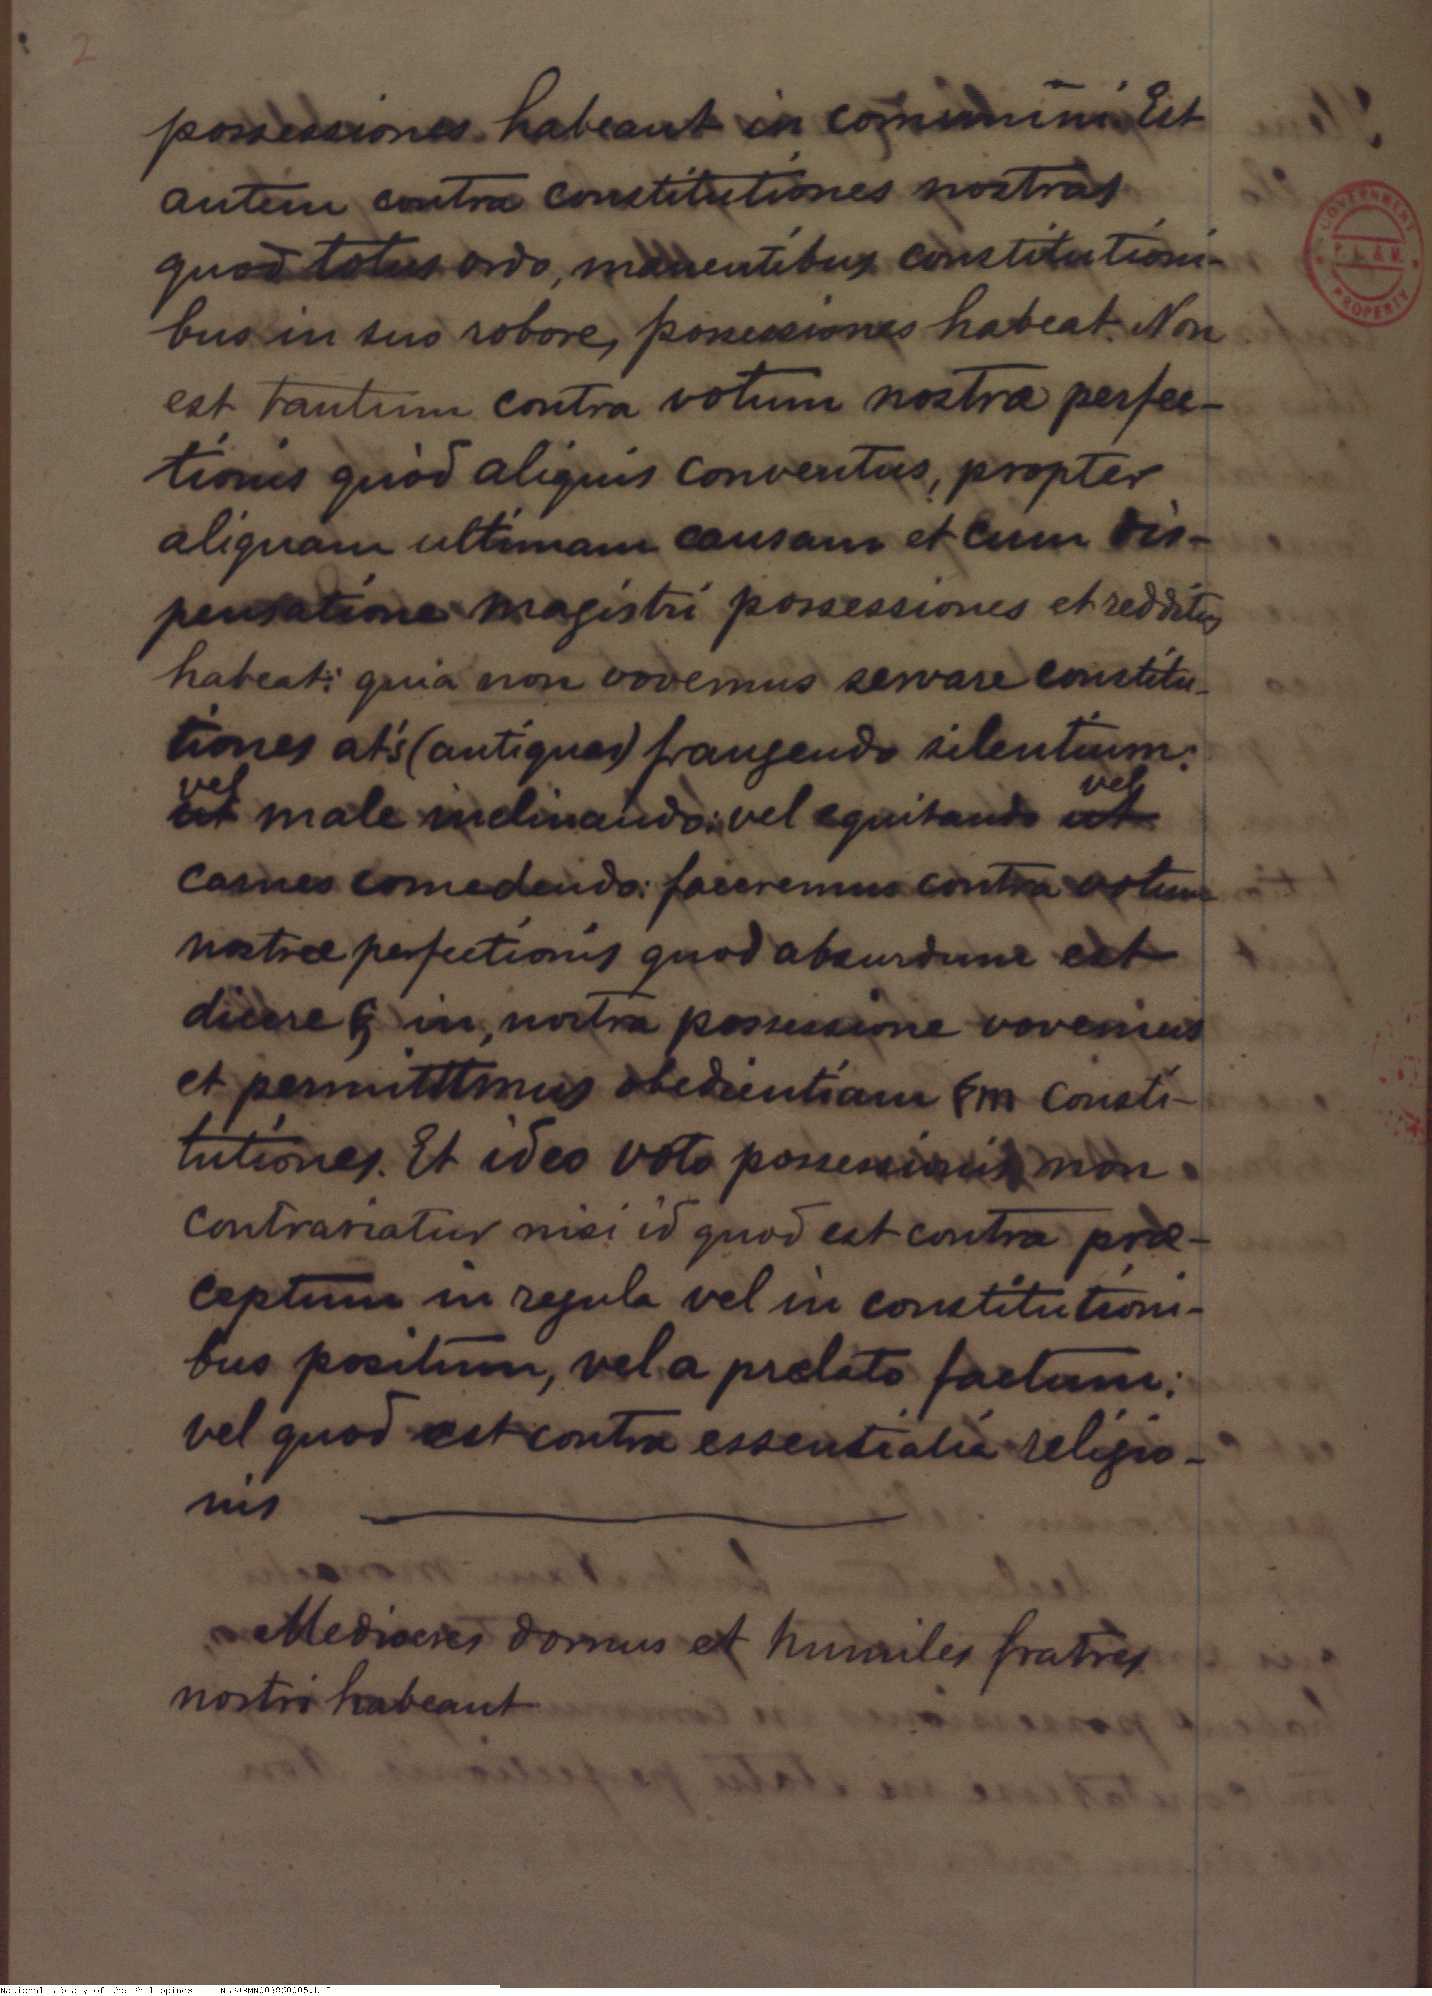 2
possessiones habeant in comumini. Est
autem contra constitutiones nostras
quod totus ordo, manentibus constitutioni-
bus in suo robore, possessiones habeat. Non
est tantum contra votum nostræ perfec-
tionis quod aliquis conventus, propter
aliquam ultimam causam et cum dis-
pensatione magistri possessiones et redditus
habeat: quia non vovemus servare constitu-
tiones at's (antiques) frangendo silentium:
vel male inclinando: vel equitando vel
carnes comedendo: faceremus contra votum
nostræ perfectionis quod absurdum est
dicere in nostra possessione vovemus
et permittimus obedientiam constì-
tutiones. Et ideo voto possessionis non
contrariatur nisi id quod est contra præ-
ceptum in regula vel in constitutioni-
bus positum, vel a prelato factum:
vel quod est contra essentialia religio-
nis
Mediocres domus et humiles fratres
nostri habeant
GOVERNMENT
P.L.& M.
PROPERTY
National Library of the Philippines